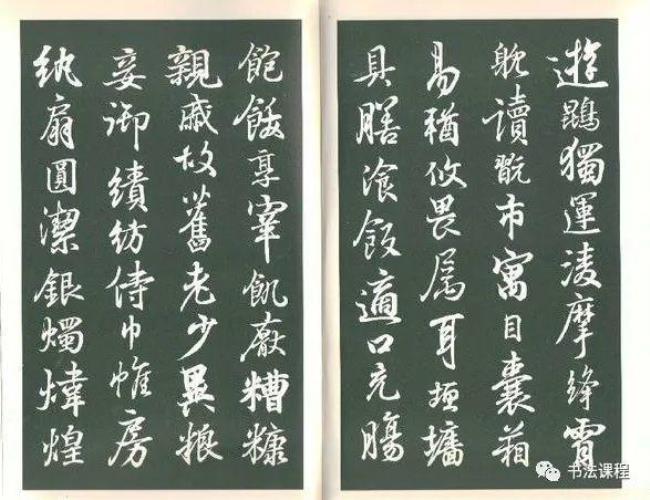 遊鵾獨運凌摩絳霄
躭讀翫市寓目囊箱
易輶攸畏属耳垣墻
具膳湌飯適口充腸
飽飫享宰飢厭糟糠
親戚故舊老少異粮
妾御績紡侍巾帷房
紈扇圓潔銀燭煒煌
书法课程